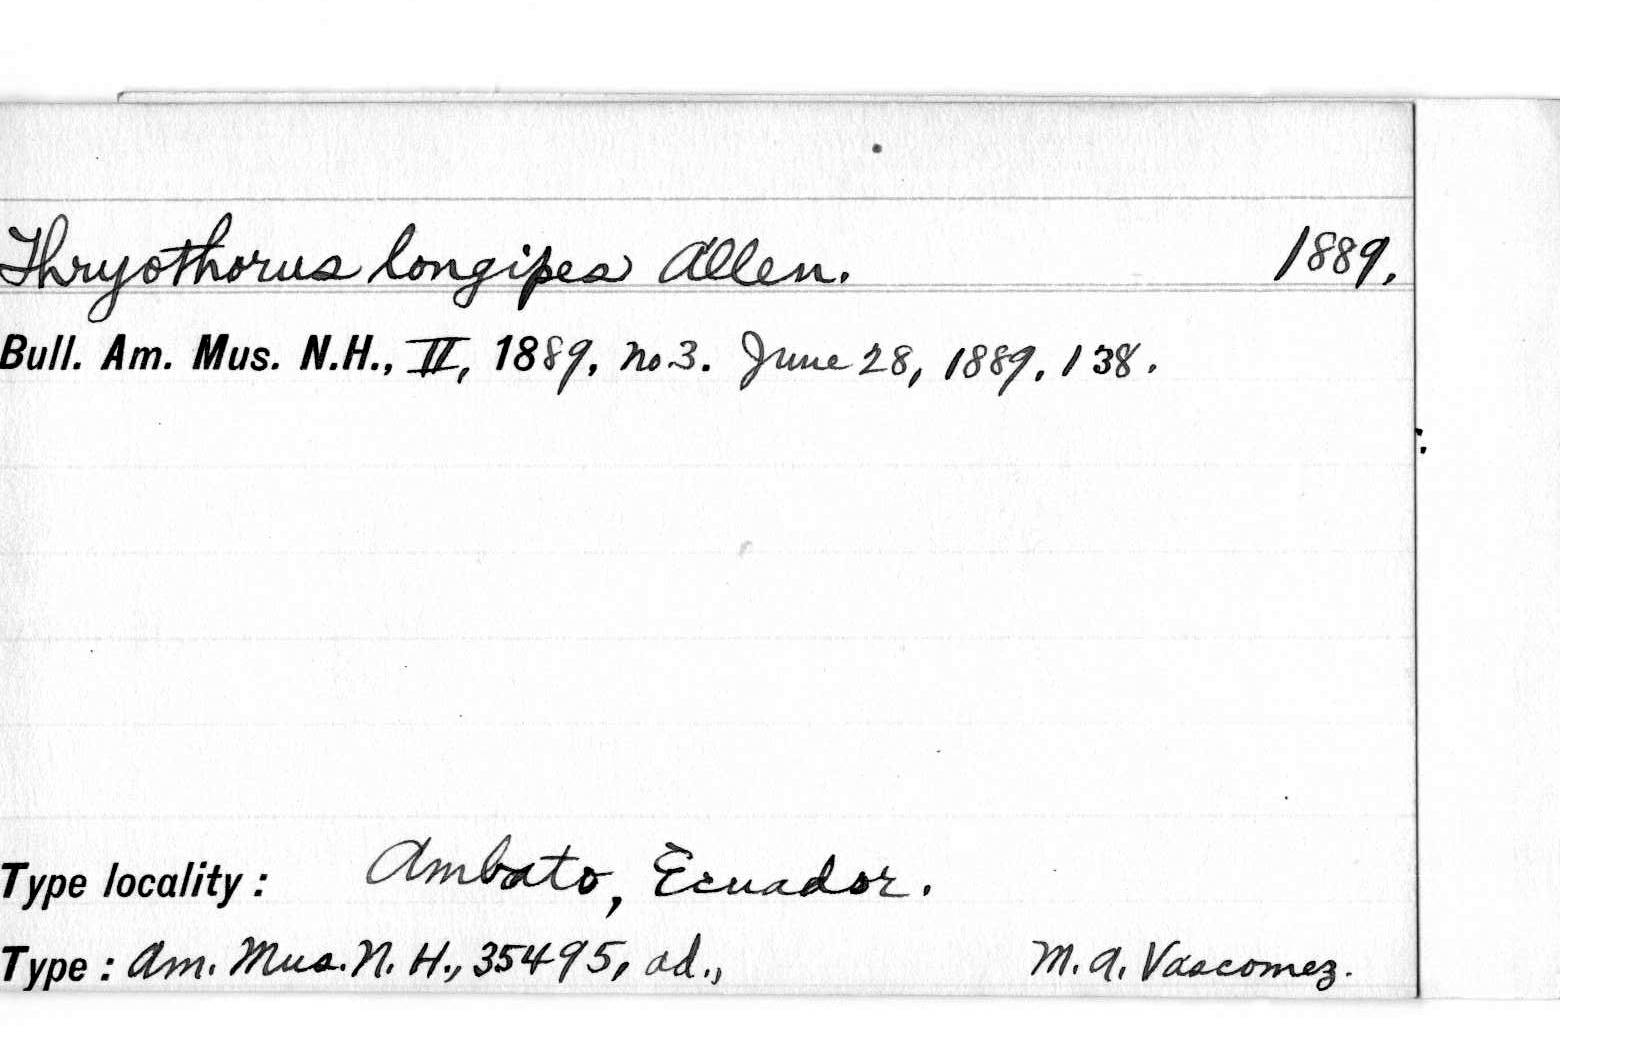 Thryothorus longipes Allen. 1889.
Bull. Am. Mus. N.H., II, 1889, no 3. June 28, 1889, 138.
Type locality: Ambato, Ecuador.
Type: Am. Mus. N. H., 35495, ad., M. A. Vascomez.